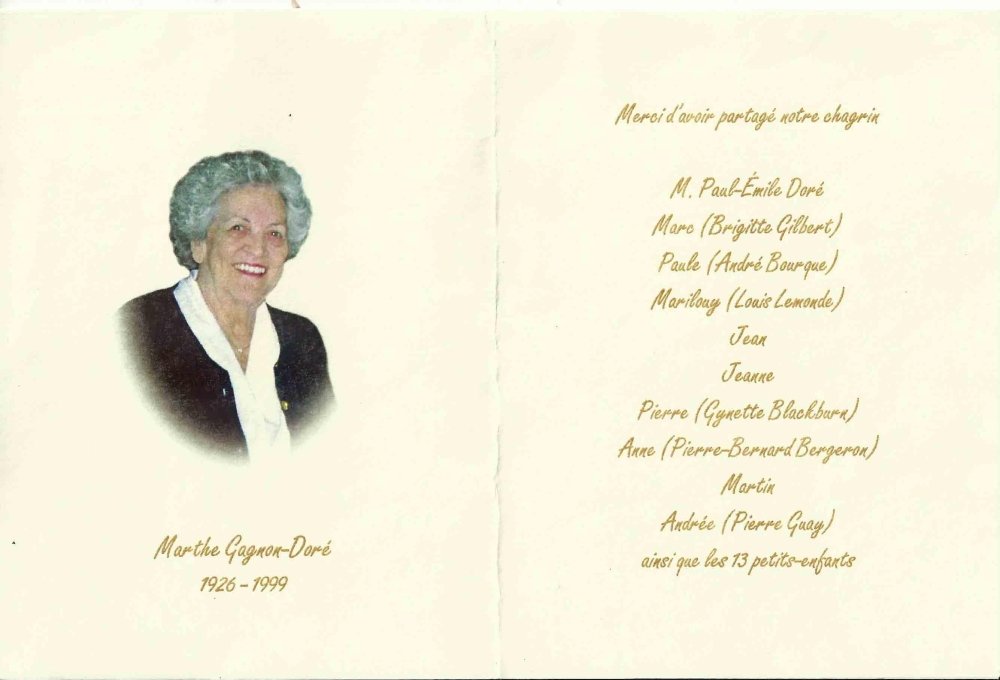 Marthe Gagnon-Doré
1926 - 1999
Merci d'avoir partagé notre chagrin
M. Paul-Émile Doré
Marc (Brigitte Gilbert)
Paule (André Bourque)
Marilouy (Louis Lemonde)
Jean
Jeanne
Pierre (Gynette Blackburn)
Anne (Pierre-Bernard Bergeron)
Martin
Andrée (Pierre Guay)
ainsi que les 13 petits-enfants